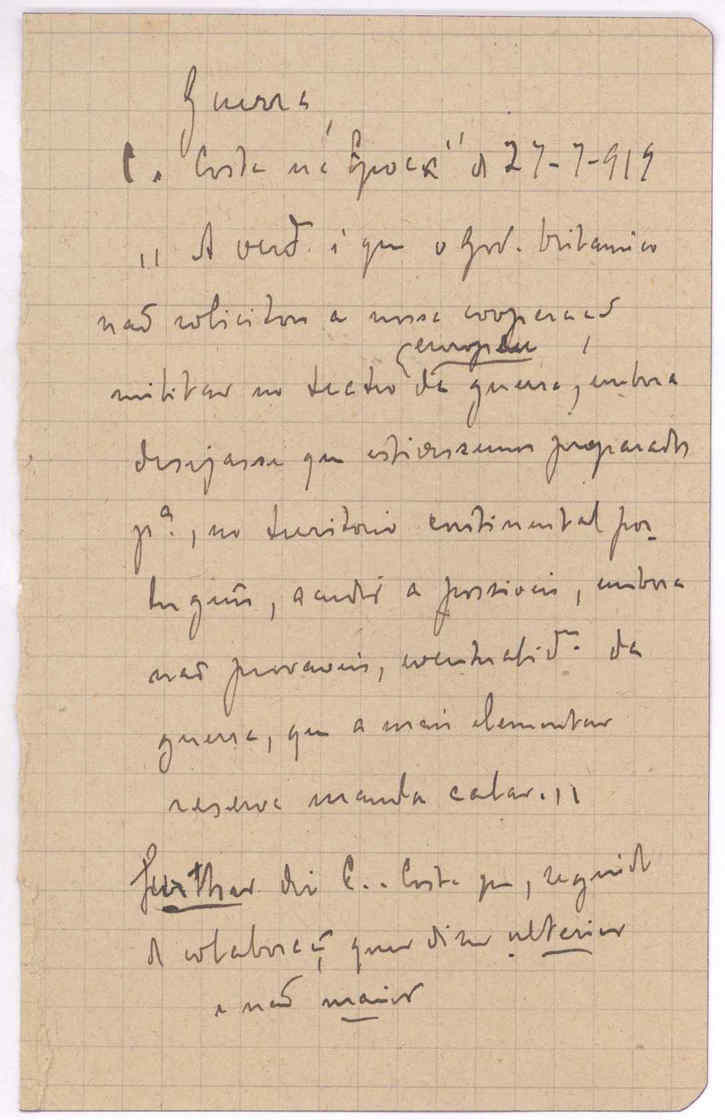 Guerra
C. Costa na "Época" de 27-7-919
"A verd. é que o Gov. britanico
não solicitou a nossa cooperação
europeu
militar no teatro da guerra, embora
desejasse que estivessemos preparados
pª., no territorio continental por-
tuguês, acudir a possiveis, embora
não provaveis, eventualid. da
guerra, que a mais elementar
reserva manda calar."
further diz C. Costa que, seguido
de colaboração quer dizer ulterior
e não maior